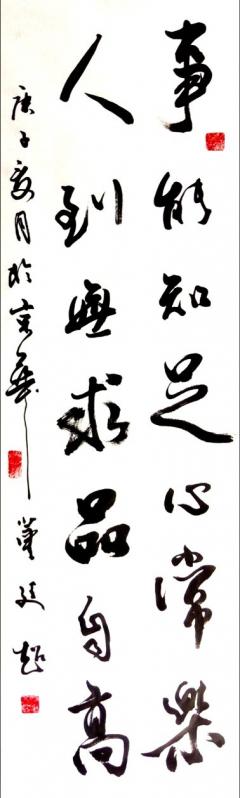 事能知足心常樂
人到無求品自高
庚子夏月於京華
董廷超